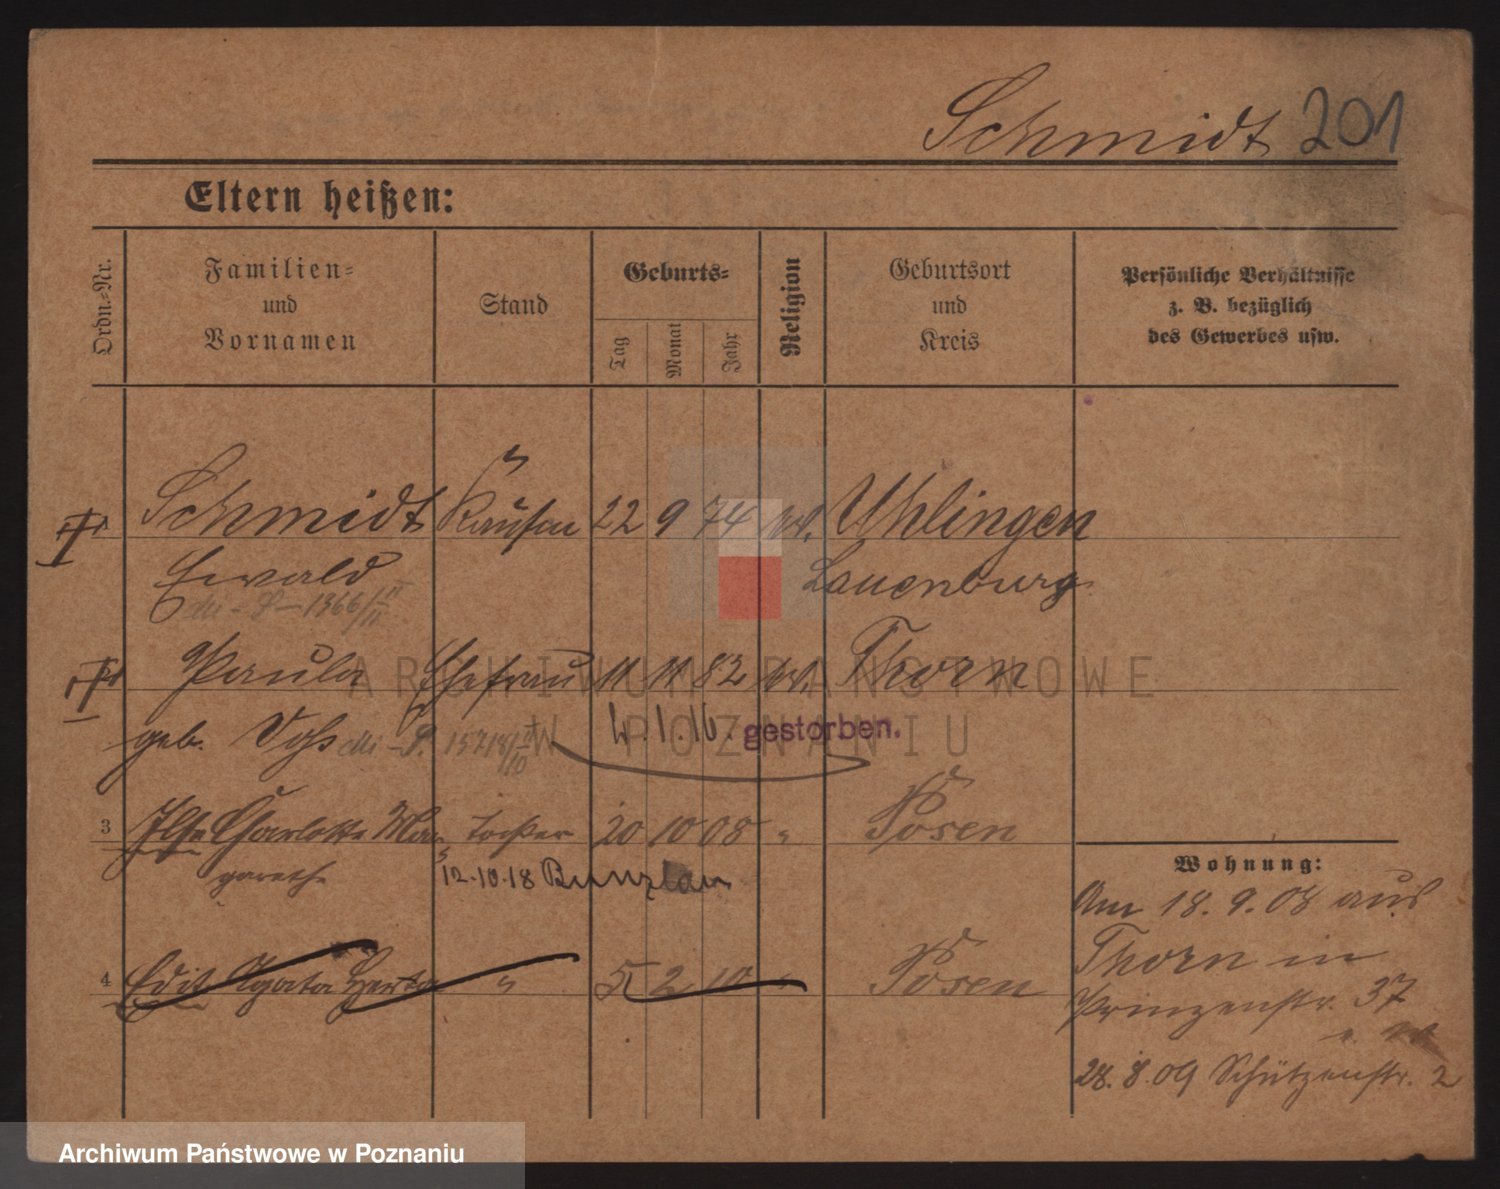 Schmidt 201
Eltern heißen:
Ordn.-Nr.
Familien-
und
Vornamen
Stand
Geburts-
Tag
Monat
Jahr
Religion
Geburtsort
und
Kreis
Persönliche Verhältnisse
z. B. bezüglich
des Gewerbes usw.
Schmidt 22 9 74 Uhlingen
Ewald Lauenburg
Paula Ehefrau 11 11 82 Thorn
geb. Voß 4.1.16. gestorben.
3 Ilse Charlotte Mar Tochter 20 10 08 " Posen
garethe 12.10.18 Bunzlau
4 Edit Agata Herta " 5 2 10 " Posen
Wohnung:
Am 18.9.08 aus
Thorn in
Prinzenstr. 37
28.8.09 Schützenstr. 2
ARCHIWUM PAŃSTWOWE
W POZNANIU
Archiwum Państwowe w Poznaniu